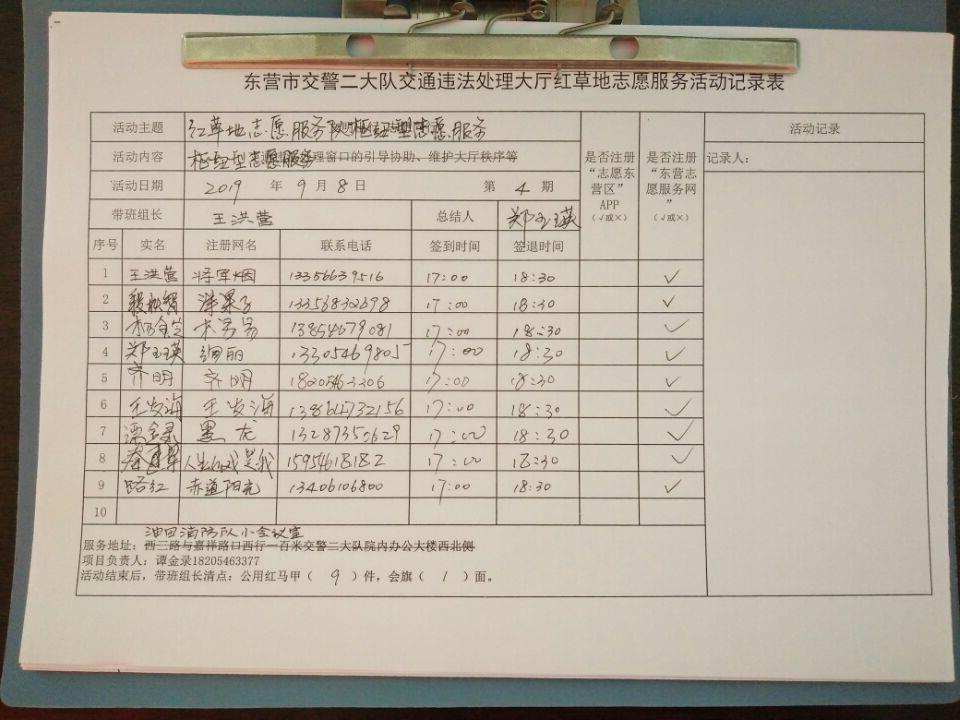 东营市交警二大队交通违法处理大厅红草地志愿服务活动记录表
活动主题 红草地志愿服务队枢纽型志愿服务
活动内容 枢纽型志愿服务理窗口的引导协助、维护大厅秩序等
活动日期 2019 年 9 月 8 日 第 4 期
带班组长 王洪营 总结人 郑玉瑛
是否注册“志愿东营区”APP（√或×）
是否注册“东营志愿服务网”（√或×）
活动记录
记录人：
序号 实名 注册网名 联系电话 签到时间 签退时间
1 王洪营 将军烟 13356639516 17:00 18:30 √
2 13356832698 17:00 18:30 √
3 13854679081 17:00 18:30 √
4 郑玉瑛 绚丽 13305469805 17:00 18:30 √
5 齐明 齐明 18205463206 17:00 18:30 √
6 王发海 王发海 13864732156 17:00 18:30 √
7 谭金录 黑龙 13287355629 17:00 18:30 √
8 人生如戏是我 15954618182 17:00 18:30 √
9 路红 赤道阳光 13406106800 17:00 18:30 √
10
油田消防队小会议室
服务地址：西三路与嘉祥路口西行一百米交警二大队院内办公大楼西北侧
项目负责人：谭金录18205463377
活动结束后，带班组长清点：公用红马甲（ 9 ）件，会旗（ 1 ）面。